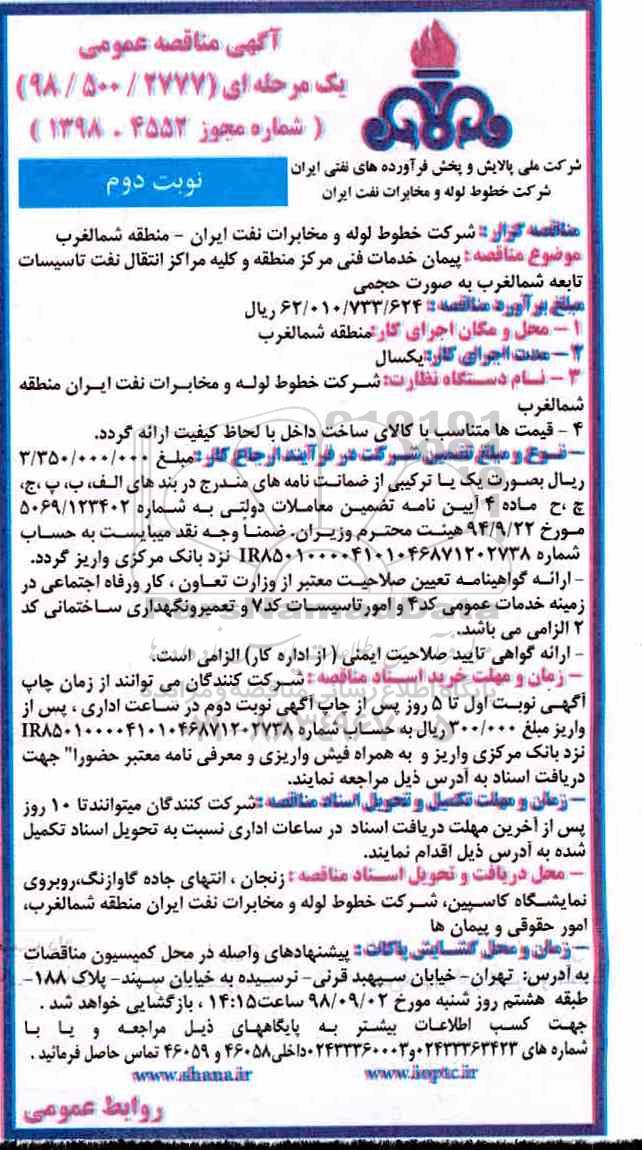 آگهی مناقصه عمومی
یک مرحله ای (۲۷۷۷ / ۵۰۰ / ۹۸)
( شماره مجوز ۴۵۵۲ . ۱۳۹۸ )
شرکت ملی پالایش و پخش فرآورده های نفتی ایران
شرکت خطوط لوله و مخابرات نفت ایران
نوبت دوم
مناقصه گزار : شرکت خطوط لوله و مخابرات نفت ایران - منطقه شمالغرب
موضوع مناقصه : پیمان خدمات فنی مرکز منطقه و کلیه مراکز انتقال نفت تاسیسات
تابعه شمالغرب به صورت حجمی
مبلغ برآورد مناقصه : ۶۲/۰۱۰/۷۳۳/۶۲۴ ریال
۱ - محل و مکان اجرای کار: منطقه شمالغرب
۲ - مدت اجرای کار: یکسال
۳ - نام دستگاه نظارت: شرکت خطوط لوله و مخابرات نفت ایران منطقه
شمالغرب
۴ - قیمت ها متناسب با کالای ساخت داخل با لحاظ کیفیت ارائه گردد.
- نوع و مبلغ تضمین شرکت در فرآیند ارجاع کار : مبلغ ۳/۳۵۰/۰۰۰/۰۰۰
ریال بصورت یک یا ترکیبی از ضمانت نامه های مندرج در بند های الف، ب، پ ،ج،
چ ،ح ماده ۴ آیین نامه تضمین معاملات دولتی به شماره ۵۰۶۹/۱۲۳۴۰۲
مورخ ۹۴/۹/۲۲ هیئت محترم وزیران. ضمنا وجه نقد میبایست به حساب
شماره IR۸۵۰۱۰۰۰۰۴۱۰۱۰۴۶۸۷۱۲۰۲۷۳۸ نزد بانک مرکزی واریز گردد.
- ارائه گواهینامه تعیین صلاحیت معتبر از وزارت تعاون ، کار ورفاه اجتماعی در
زمینه خدمات عمومی کد۴ و امور تاسیسات کد۷ و تعمیرونگهداری ساختمانی کد
۲ الزامی می باشد.
- ارائه گواهی تایید صلاحیت ایمنی ( از اداره کار) الزامی است.
- زمان و مهلت خرید اسناد مناقصه : شرکت کنندگان می توانند از زمان چاپ
آگهی نوبت اول تا ۵ روز پس از چاپ آگهی نوبت دوم در ساعت اداری ، پس از
واریز مبلغ ۳۰۰/۰۰۰ ریال به حساب شماره IR۸۵۰۱۰۰۰۰۴۱۰۱۰۴۶۸۷۱۲۰۲۷۳۸
نزد بانک مرکزی واریز و به همراه فیش واریزی و معرفی نامه معتبر حضورا" جهت
دریافت اسناد به آدرس ذیل مراجعه نمایند.
- زمان و مهلت تکمیل و تحویل اسناد مناقصه : شرکت کنندگان میتوانندتا ۱۰ روز
پس از آخرین مهلت دریافت اسناد در ساعات اداری نسبت به تحویل اسناد تکمیل
شده به آدرس ذیل اقدام نمایند.
- محل دریافت و تحویل اسناد مناقصه : زنجان ، انتهای جاده گاوازنگ،روبروی
نمایشگاه کاسپین، شرکت خطوط لوله و مخابرات نفت ایران منطقه شمالغرب،
امور حقوقی و پیمان ها
- زمان و محل گشایش پاکات : پیشنهادهای واصله در محل کمیسیون مناقصات
به آدرس: تهران- خیابان سپهبد قرنی- نرسیده به خیابان سپند- پلاک ۱۸۸-
طبقه هشتم روز شنبه مورخ ۹۸/۰۹/۰۲ ساعت۱۴:۱۵ ، بازگشایی خواهد شد .
جهت کسب اطلاعات بیشتر به پایگاههای ذیل مراجعه و یا با
شماره های ۰۲۴۳۳۳۶۳۴۲۳و۰۲۴۳۳۳۶۰۰۰۳داخلی۴۶۰۵۸ و ۴۶۰۵۹ تماس حاصل فرمائید .
www.ioptc.ir www.shana.ir
روابط عمومی